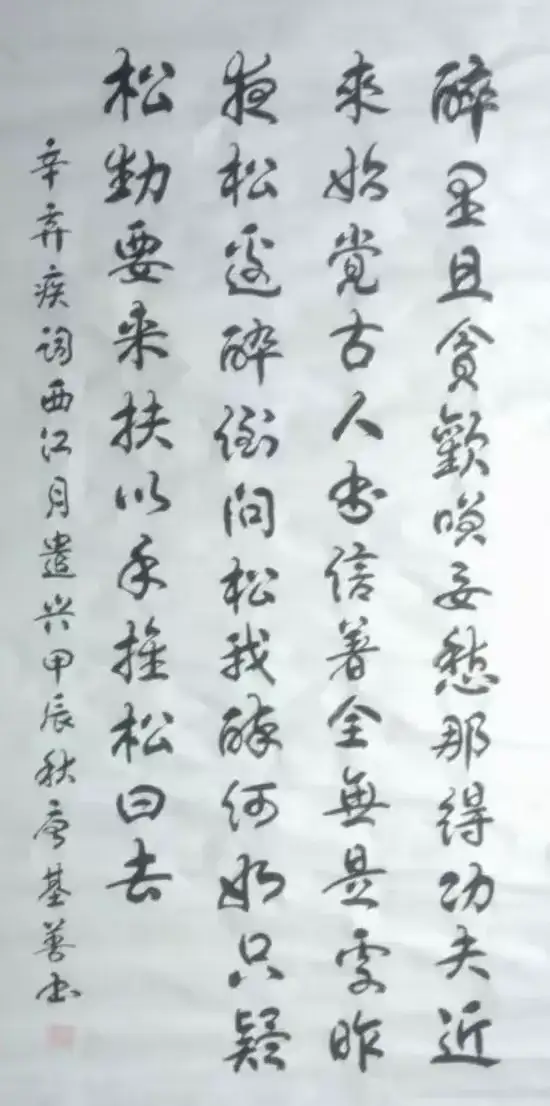 醉里且貪歡咲要愁那得功夫近
來始覺古人書信著全無是處昨
夜松邊醉倒問松我醉何如只疑
松動要来扶以手推松曰去
辛弃疾词西江月遣兴甲辰秋唐基善书